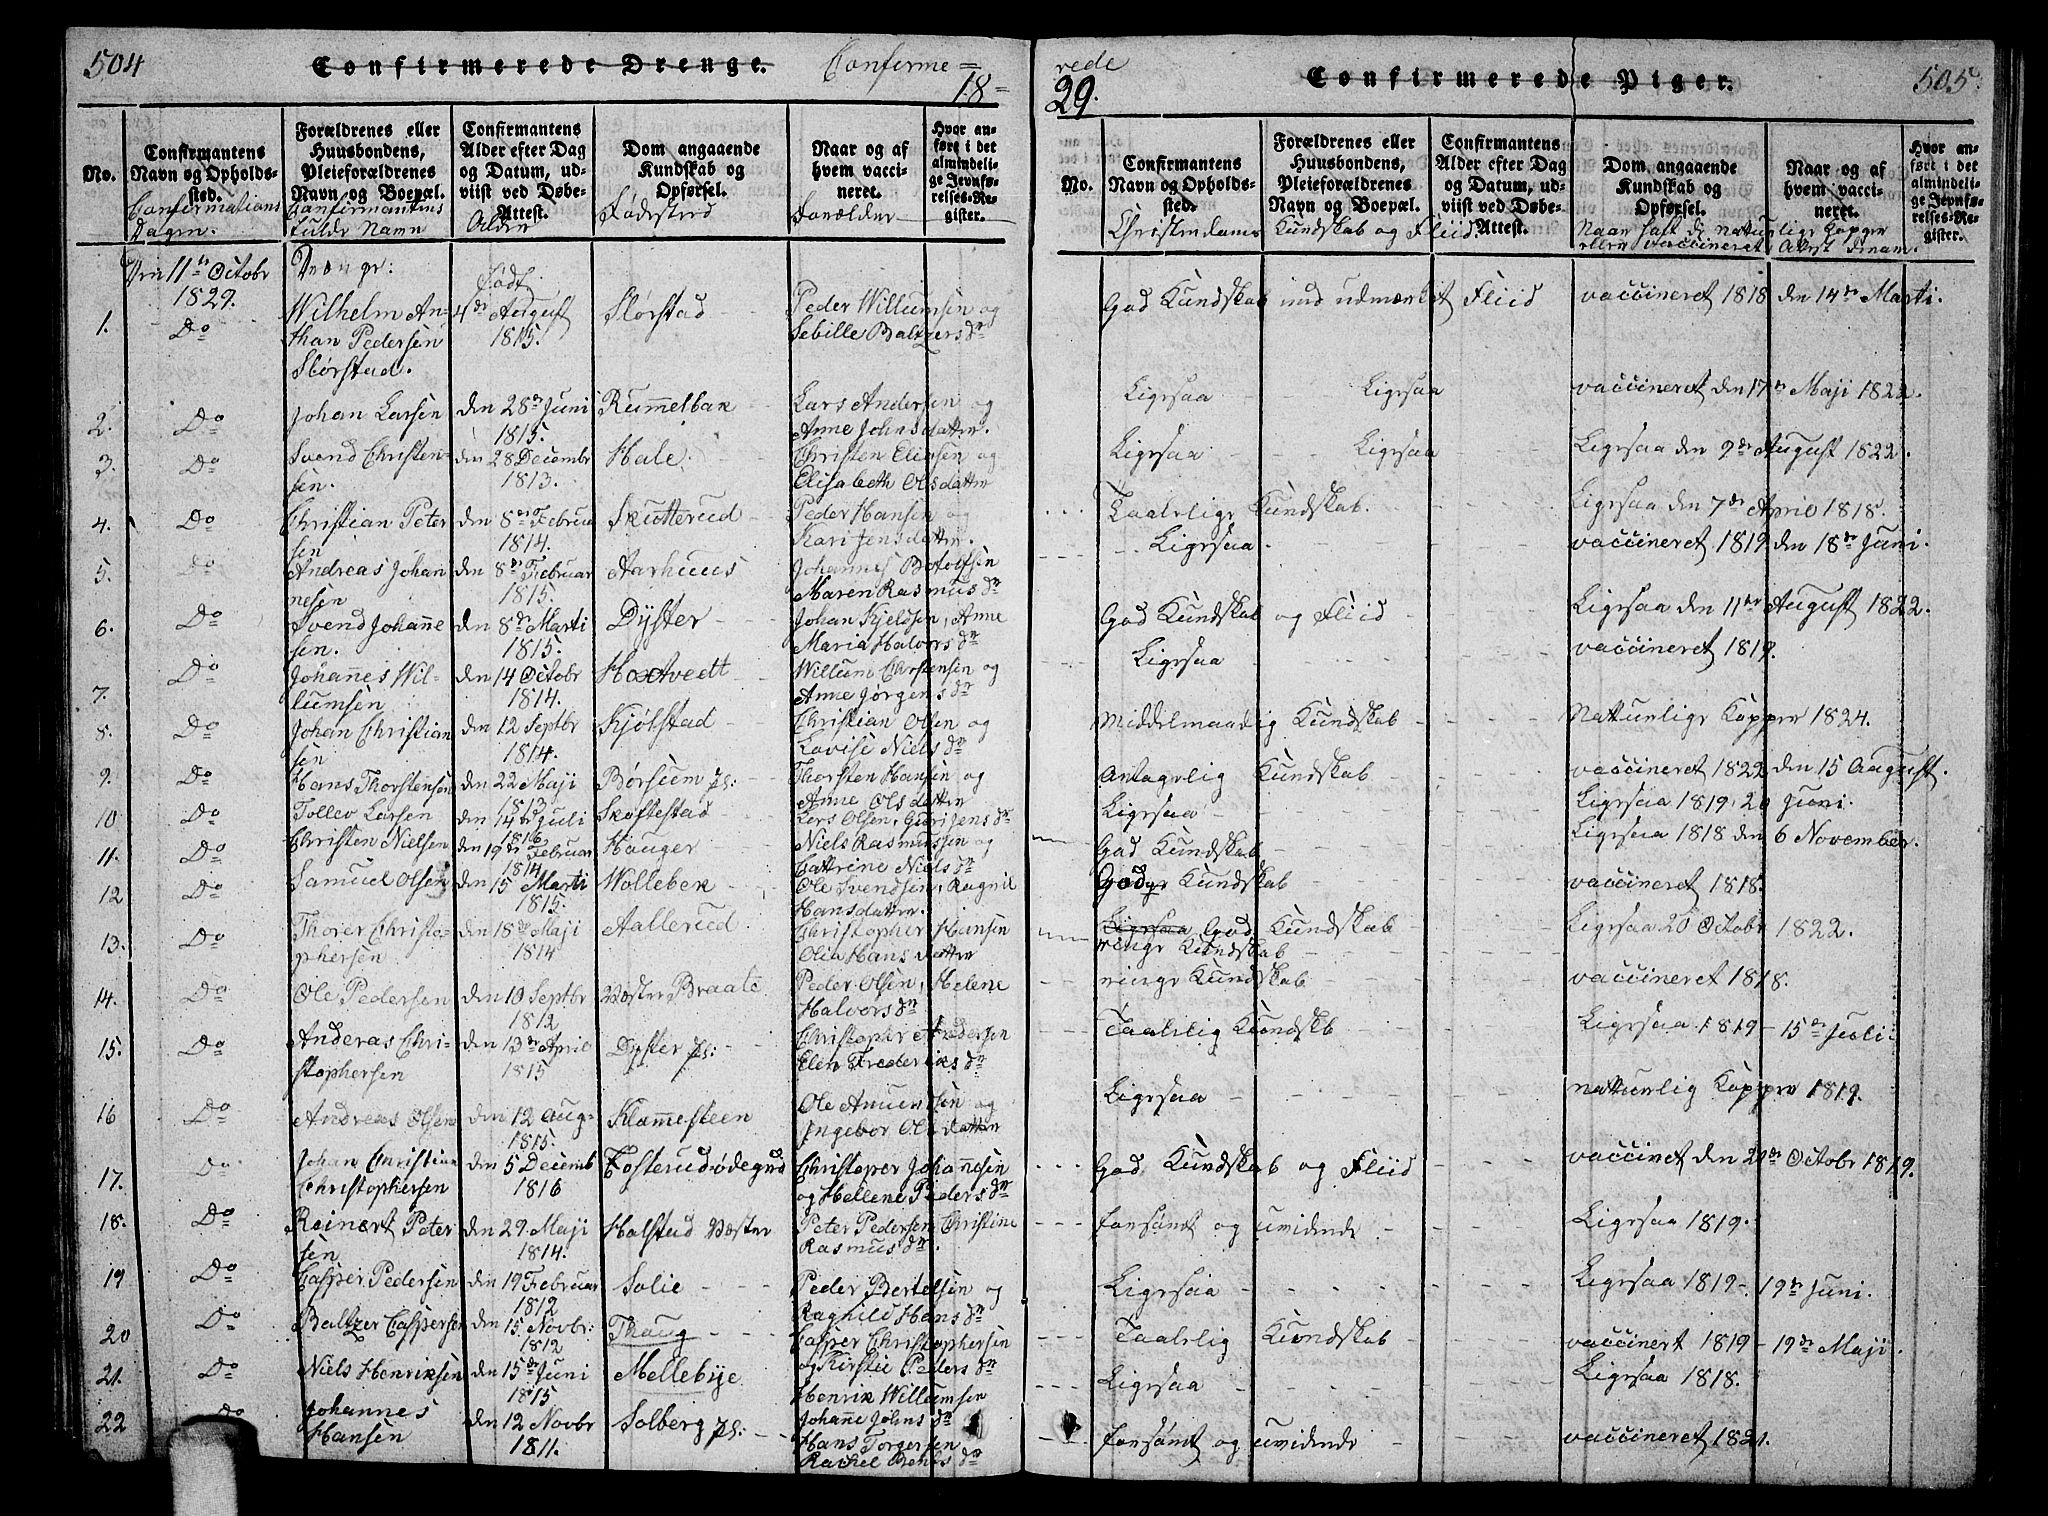 504
Confirmerede Drenge.
Confirme=
18=
No.
Confirmantens Navn og Opholdssted.
Forældrenes eller Huusbondens, Pleieforældrenes Navn og Boepæl.
Confirmantens Alder efter Dag og Datum, udviist ved Døbe-Attest.
Dom angaaende Kundskab og Opførsel.
Naar og af hvem vaccineret.
Hvor anført i det almindelige Jevnførelses-Register.
Confirmations Dagen.
Confirmantens fulde Navn
Alder
Fødested
Forældre
Den 11te Octobr 1829.
Drenge:
Født
1. Do Wilhelm Anthan Pedersen Slørstad. 4de August 1815. Slørstad Peder Willumsen og Sebille Baltzersdr
2. Do Johan Larsen den 28de Juni 1815. Rummelbak Lars Andersen og Anne Johnsdatter.
3. Do Svend Christensen. den 28 Decembr 1813. Hale. Christen Eliasen og Elisabeth Olsdatter
4. Do Christian Petersen den 8de Februa 1814. Skutterud Peder Hansen og Kari Jensdatter.
5. Do Andreas Johannesen den 8de Februar 1815. Aarhuus Johannes Botolfsen Maren Rasmusdr
6. Do Svend Johannesen. den 8de Marti 1815. Dyster Johan Kjeldsen, Anne Maria Halvorsdr
7. Do Johannes Willumsen den 14 Octobr 1814. Hoxtvedt Willum Christensen og Anne Jørgensdr
8. Do Johan Christiansen den 12 Septbr 1814. Kjølstad Christian Olsen og Lovise Nielsdr
9. Do Hans Thorstensen den 22 Maji 1813 Børsum pl: Thorsten Hansen og Anne Olsdatter
10 Do Tollev Larsen den 14de Juli 1816 Skoftestad Lars Olsen, Guri Jensdr
11. Do Christen Nielsen den 19de Februar 1814 Hauger Niels Rasmussen og Cattrine Nielsdr
12 Do Samuel Olsen den 15 Marti 1815. Wollebek Ole Svendsen, Ragnil Hansdatter.
13. Do Thorer Christophersen den 18de Maji 1814 Aallerud Christopher Hansen Olia Hansdatter
14. Do Ole Pedersen den 10 Septbr 1812 Vøster Braate Peder Olsen, Helene Halvorsdr
15. Do Anderas Christophersen den 13de April 1815 Dyster pl: Christopher Andersen Elen Frederiksdr
16 Do Andreas Olsen den 12 Aug- 1815. Klommesteen Ole Amundsen og Ingebor Olsdatter
17. Do Johan Christian Christophersen den 5 Decemb 1816 Fosterudødegrd Christoper Johannesen og Hellene Pedersdr
18. Do Reinert Petersen den 29 Maji 1814. Holstad Vøster Peter Pedersen, Christine Rasmusdr.
19 Do Casper Pedersen den 19 Februar 1812 Solie Peder Bertelsen og Raghild Hansdr
20 Do Baltzer Caspersen den 15 Novbr: 1812 Thoug Casper Christophersen og Kirstie Pedersdr
21. Do Niels Henriksen den 15de Juni 1815 Mellebye Henrik Willumsen Johanne Johnsdr
22 Do Johannes Hansen den 12 Novbr 1811. Solberg pl: Hans Torgersen Rachel
rede
29.
Confirmerede Piger.
505.
No.
Confirmantens Navn og Opholdssted.
Forældrenes eller Huusbondens, Pleieforældrenes Navn og Boepæl.
Confirmantens Alder efter Dag og Datum, udviist ved Døbe-Attest.
Dom angaaende Kundskab og Opførsel.
Naar og af hvem vaccineret.
Hvor anført i det almindelige Jevnførelses-Register.
Christendoms Kundskab og Fliid.
Naar haft de naturlige Kopper eller vaccineret
God Kundskab med udmærket Fliid vaccineret 1818 den 14de Marti.
Ligesaa Ligesaa vaccineret den 17de Maji 1822.
Ligesaa Ligesaa Ligesaa den 9de August 1822.
Taalelige Kundskab. Ligesaa den 7de April 1818.
Ligesaa. vaccineret 1819 den 18de Juni.
God Kundskab og Fliid Ligesaa den 11te August 1822.
Ligesaa vaccineret 1819.
Middelmaadig Kundskab Natturlige Kopper 1824.
Antagelig Kundskab vaccineret 1822 den 15 August.
Ligesaa Ligesaa 1819. 20 Juni.
God Kundskab Ligesaa 1818 den 6 November.
Gode Kundskab vaccineret 1818.
Ligesaa God Kundskab Ligesaa 20 Octobr 1822.
ringe Kundskab
ringe Kundskab vaccineret 1818.
Taalelig Kundskb Ligesaa 1819 - 15de Juli.
Ligesaa natturlig Kopper 1819.
God Kundskab og Fliid vaccinet den 29de Octobr 1819.
forsømt og uvidende Ligesaa 1819.
Ligesaa Ligesaa 1819 - 19de Juni.
Taalelig Kundskab vaccinert 1819 - 19de Maji.
Ligesaa Ligesaa 1818.
forsømt og uvidende vaccineret 1821.